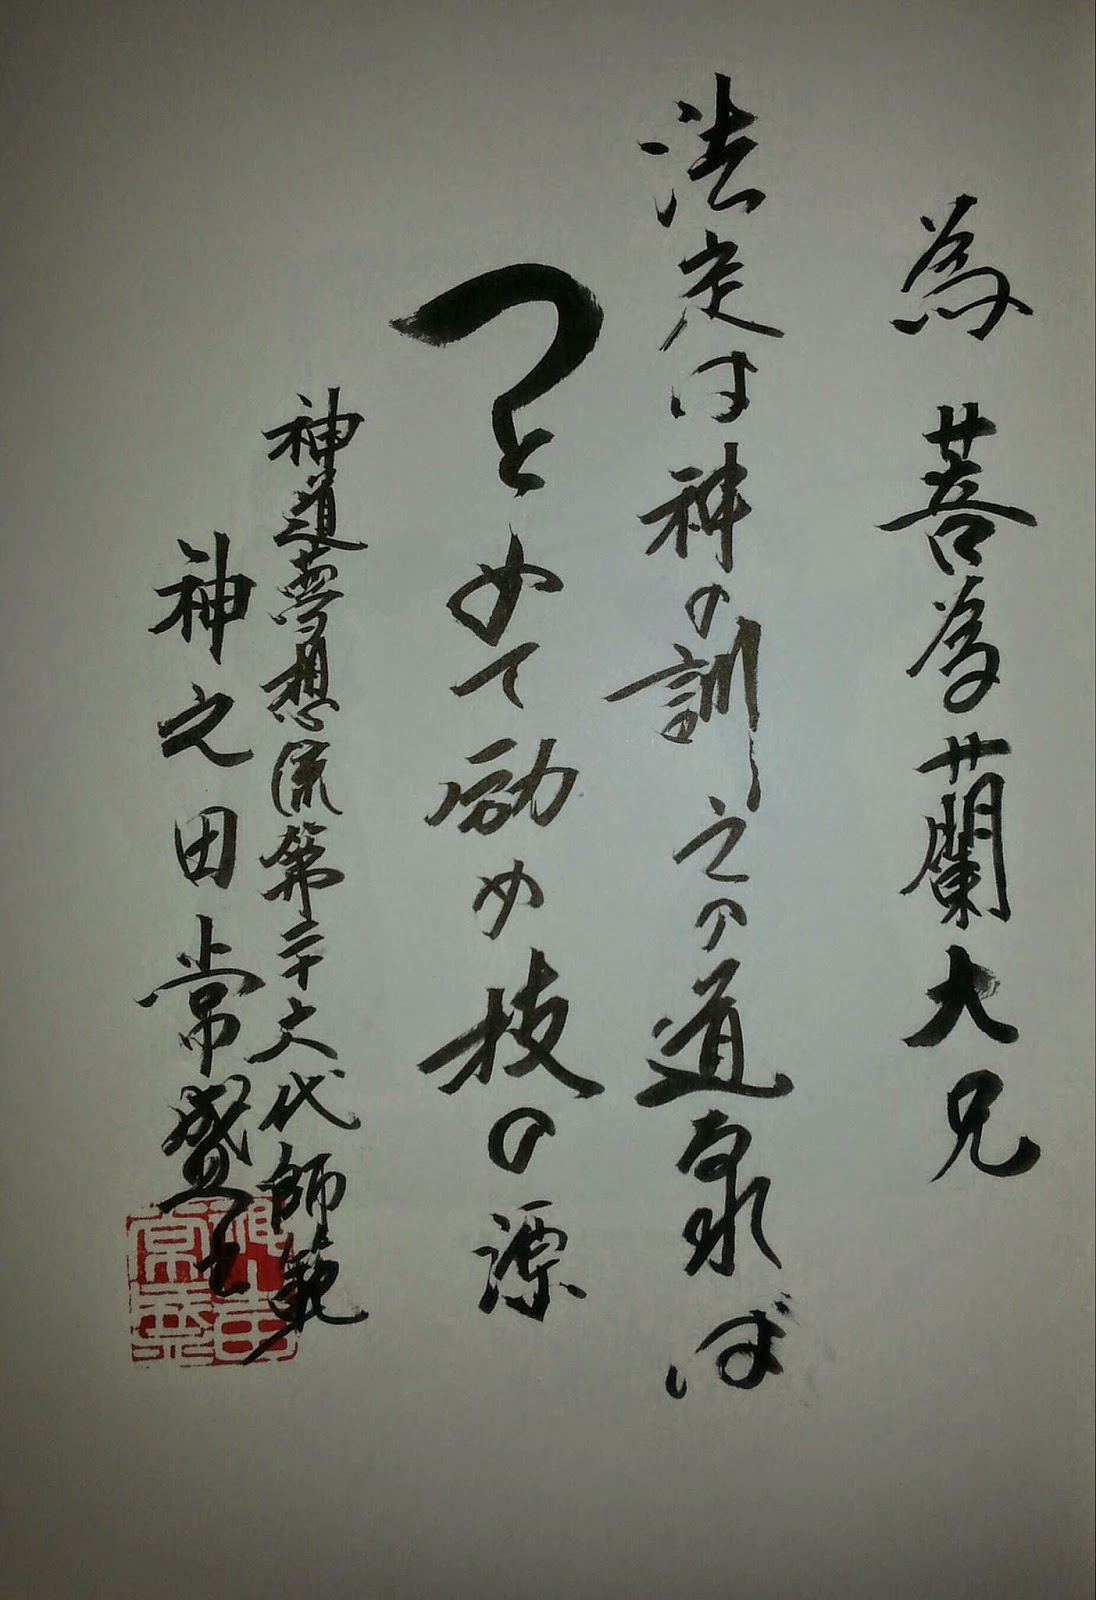 為 菩為蘭大兄
法定は神の訓之の道なれば
つとめて励め技の源
神道夢想流第二十六代師範
神之田常盛